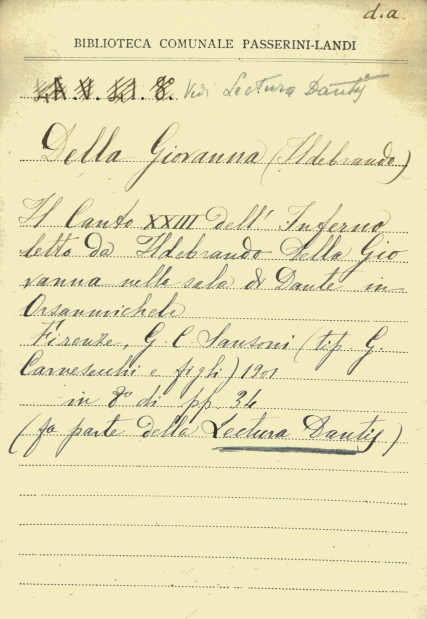 d.a.
BIBLIOTECA COMUNALE PASSERINI-LANDI
Vedi Lectura Dantis
Della Giovanna (Ildebrando)
Il Canto XXIII dell' Inferno
letto da Ildebrando Della Gio
vanna nella sala di Dante in
Orsanmichele
Firenze, G. C. Sansoni (tip. G.
Carnesecchi e figli) 1901
in 8º di pp. 34
(fa parte della Lectura Dantis)